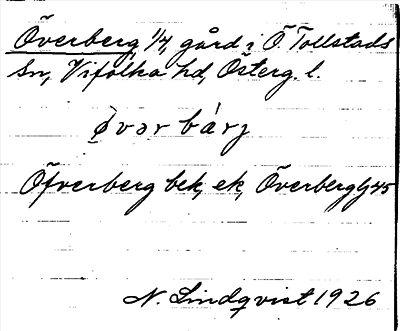 Överberg, 1/4, gård i Ö. Tollstads
Sn, Vifolka hd, Österg. l.
övər bärj
Öfverberg bek, ek, Överberg Gj 45
N. Lindqvist 1926